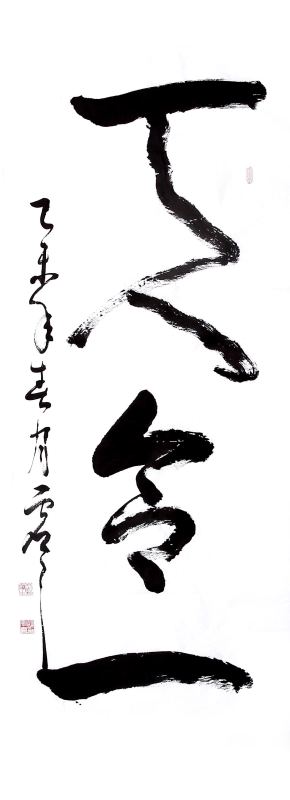 天人合一
乙未年春月